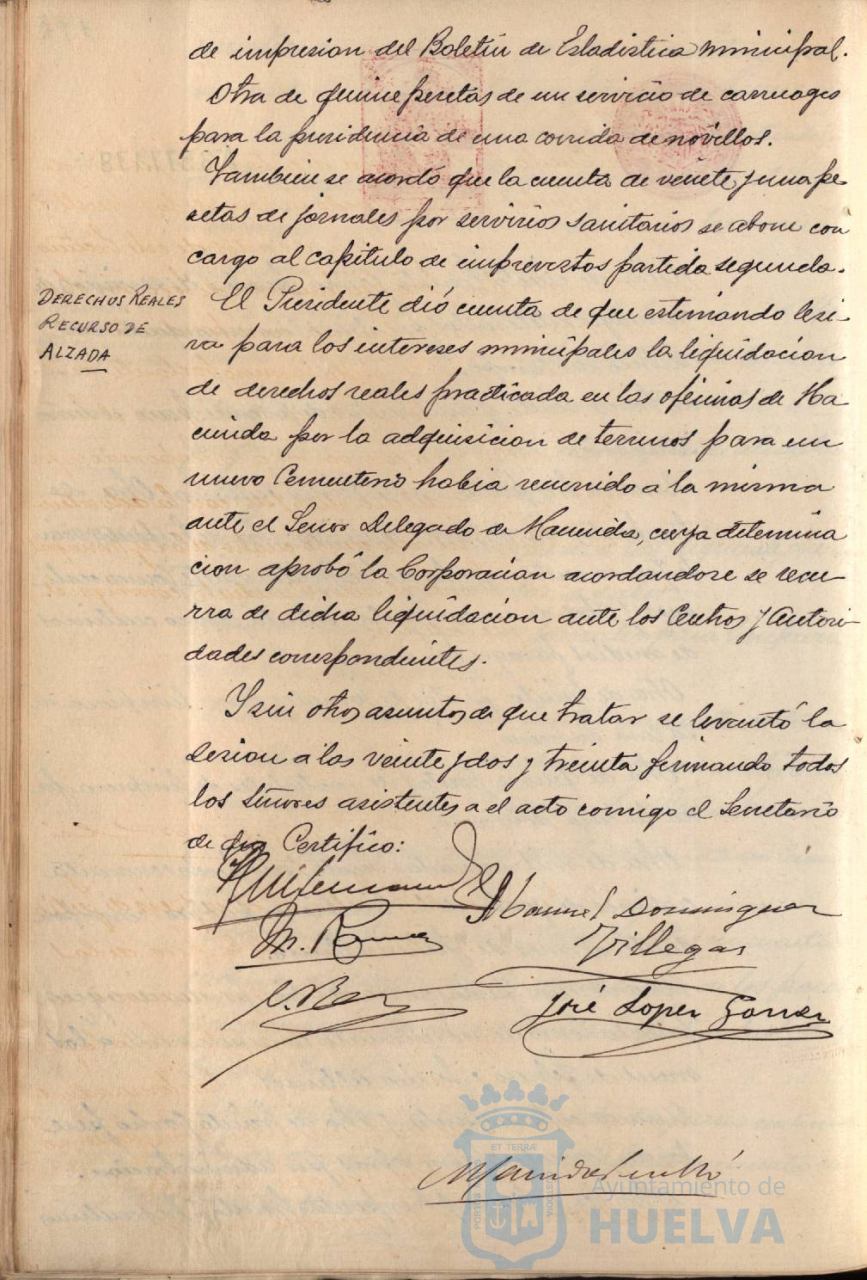 de impresion del Boletin de Estadistica municipal.
Otra de quince pesetas de un servicio de carruages
para la presidencia de una corrida de novillos.
Tambien se acordó que la cuenta de veinte y una pe
setas de jornales por servicios sanitarios se abone con
cargo al capitulo de imprevistos partida segunda.
DERECHOS REALES
RECURSO DE
ALZADA
El Presidente dió cuenta de que estimando lesi-
va para los intereses municipales la liquidacion
de derechos reales practicada en las oficinas de Ha
cienda por la adquisicion de terrenos para un
nuevo Cementerio habia recurrido á la misma
ante el Señor Delegado de Hacienda, cuya determina
cion aprobó la Corporacion acordandose se recu-
rra de dicha liquidacion ante los Centros y Autori-
dades correspondientes.
Y sin otros asuntos de que tratar se levantó la
sesion a las veinte y dos y treinta firmando todos
los señores asistentes a el acto comigo el Secretario
de que Certifico:
Manuel Dominguez
M. R
Villegas
José Lopez
ET TERRÆ
Ayuntamiento de
HUELVA